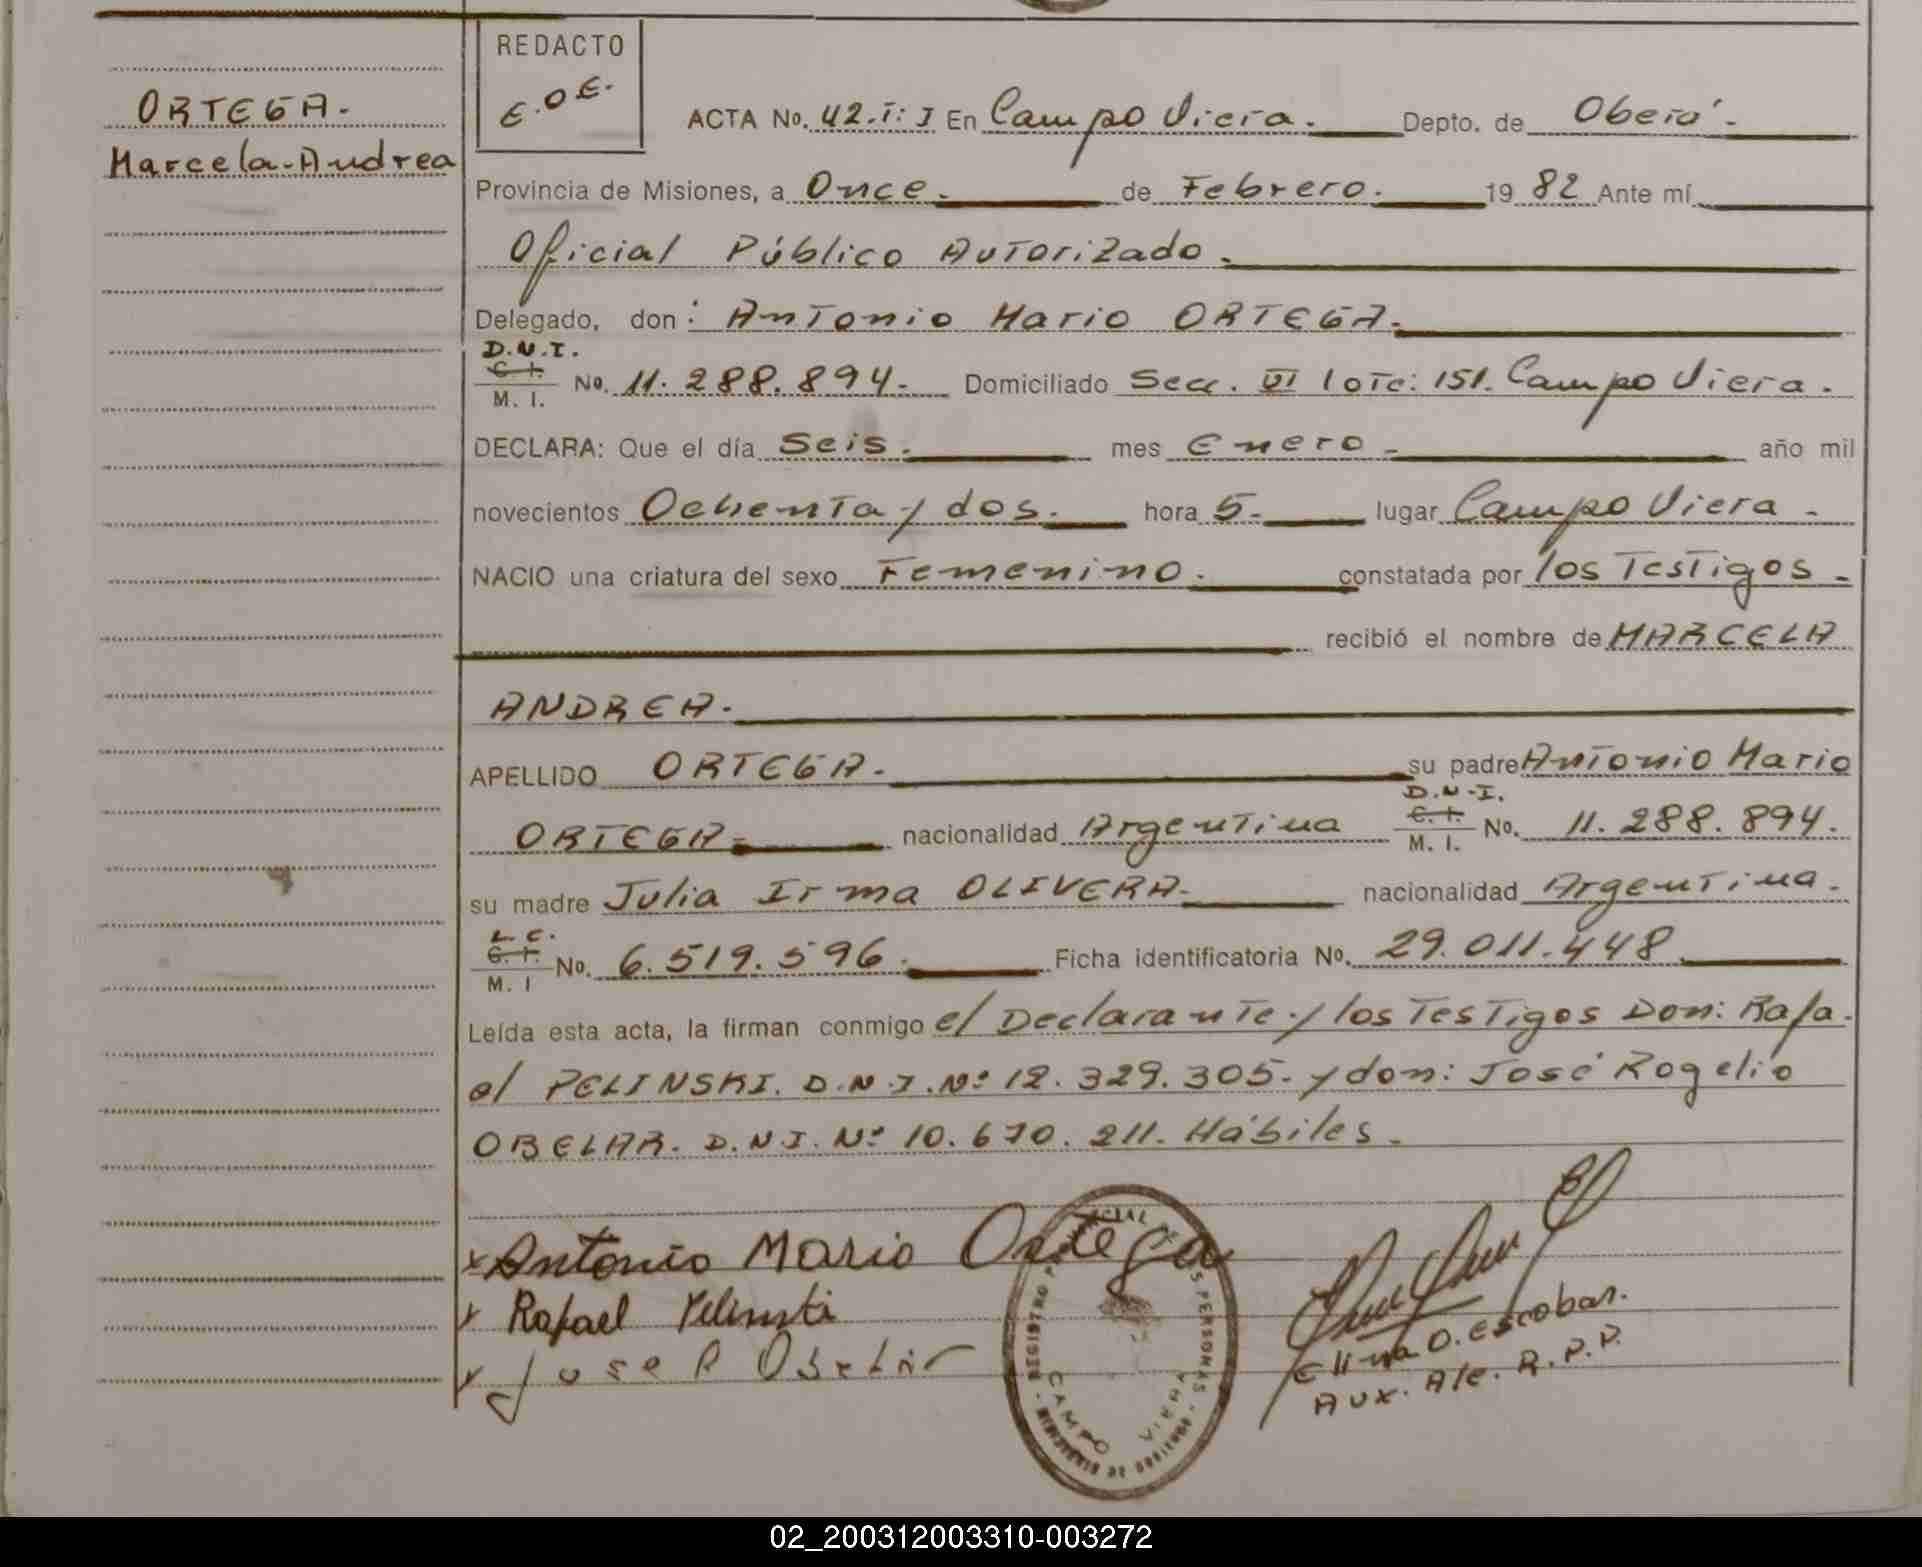 ORTEGA.
Marcela-Andrea
REDACTO
E.O.E.
ACTA No. 42.T: I En Campo Viera. Depto. de Oberá.
Provincia de Misiones, a Once. de Febrero. 19 82 Ante mí
Oficial Público Autorizado.
Delegado, don: Antonio Mario ORTEGA.
D.N.I.
C.I.
M. I. No. 11.288.894. Domiciliado Secc. VI lote: 151. Campo Viera.
DECLARA: Que el día Seis. mes Enero. año mil
novecientos Ochenta y dos. hora 5. lugar Campo Viera.
NACIO una criatura del sexo Femenino. constatada por los Testigos.
recibió el nombre de MARCELA
ANDREA.
APELLIDO ORTEGA. su padre Antonio Mario
D.N.I.
ORTEGA. nacionalidad Argentina C.I. M. I. No. 11.288.894.
su madre Julia Irma OLIVERA. nacionalidad Argentina.
L.C.
C.I.
M. I No. 6.519.596. Ficha identificatoria No. 29.011.448
Leída esta acta, la firman conmigo el Declarante y los Testigos Don: Rafa.
el PELINSKI. D.N.I. Nº 12.329.305. y don: José Rogelio
OBELAR. D.N.I. Nº 10.670.211. Hábiles.
x Antonio Mario Ortega
x Rafael Pelinski
x Jose R Obelar
REGISTRO PROVINCIAL DE LAS PERSONAS
MINISTERIO DE GOBIERNO
CAMPO VIERA
Elina O. Escobar.
Aux. A/c. R.P.P.
02_200312003310-003272